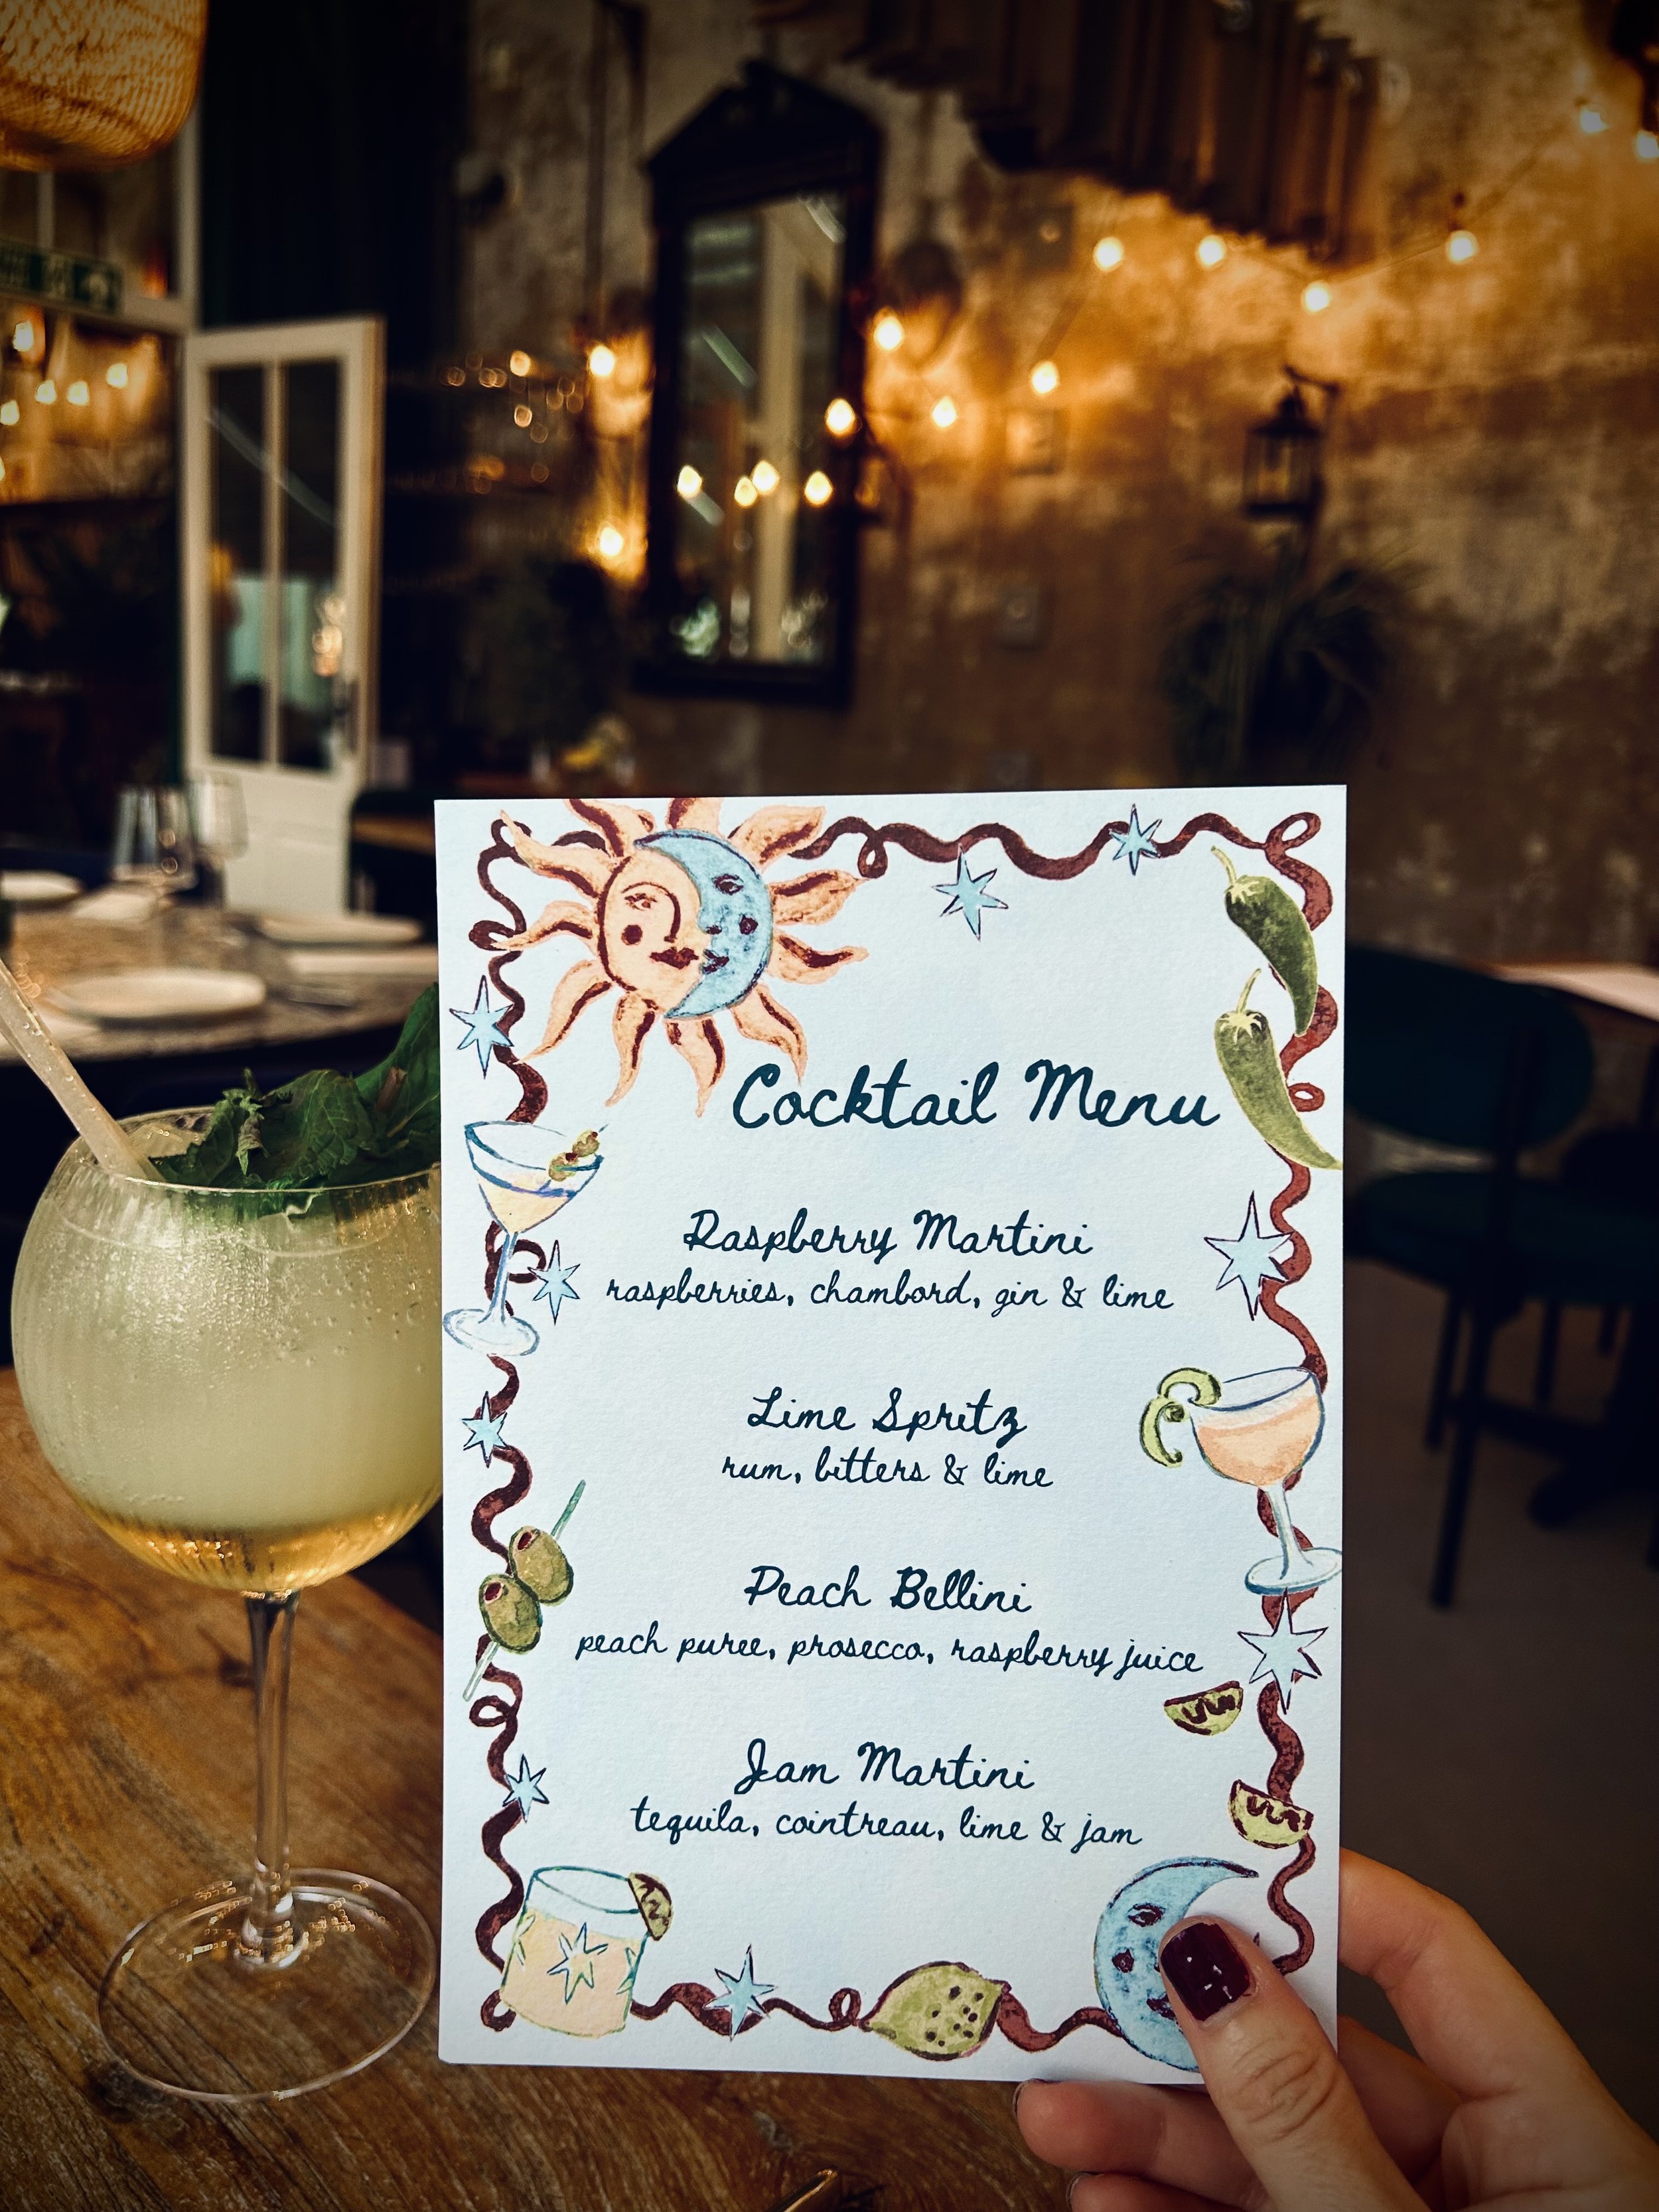 Cocktail Menu
Raspberry Martini
raspberries, chambord, gin & lime
Lime Spritz
rum, bitters & lime
Peach Bellini
peach puree, prosecco, raspberry juice
Jam Martini
tequila, cointreau, lime & jam